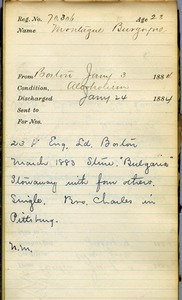 Reg. No. 72306 Age 23
Name Montague Burgoyne
From Boston Jany 3 1884
Condition, Alcoholism
Discharged Jany 24 1884
Sent to
For Nos.
23 Eng. Ld. Boston
March 1883 Stmr. "Bulgaria"
Stowaway with four others.
Single. Bro. Charles in
Pittsburg.